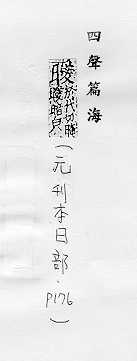 四聲篇海
於代切
(元刊本日部·P176)